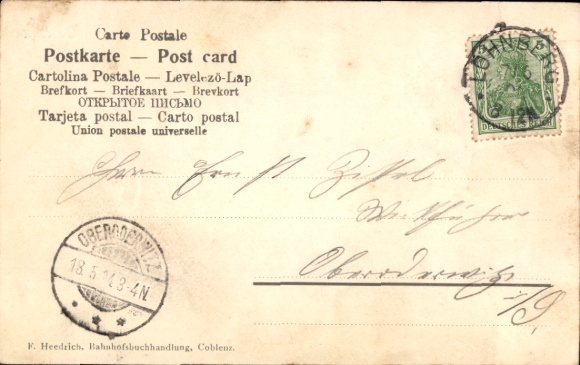 Carte Postale
Postkarte — Post card
Cartolina Postale — Levelező-Lap
Brefkort — Briefkaart — Brevkort
ОТКРЫТОЕ ПИСЬМО
Tarjeta postal — Carto postal
Union postale universelle
LÖHNBERG
DEUTSCHES REICH
Herrn Ernst Zissel
Oberoderwitz
i/S
OBERODERWITZ
18.5. 3-4N.
F. Heedrich, Bahnhofsbuchhandlung, Coblenz.